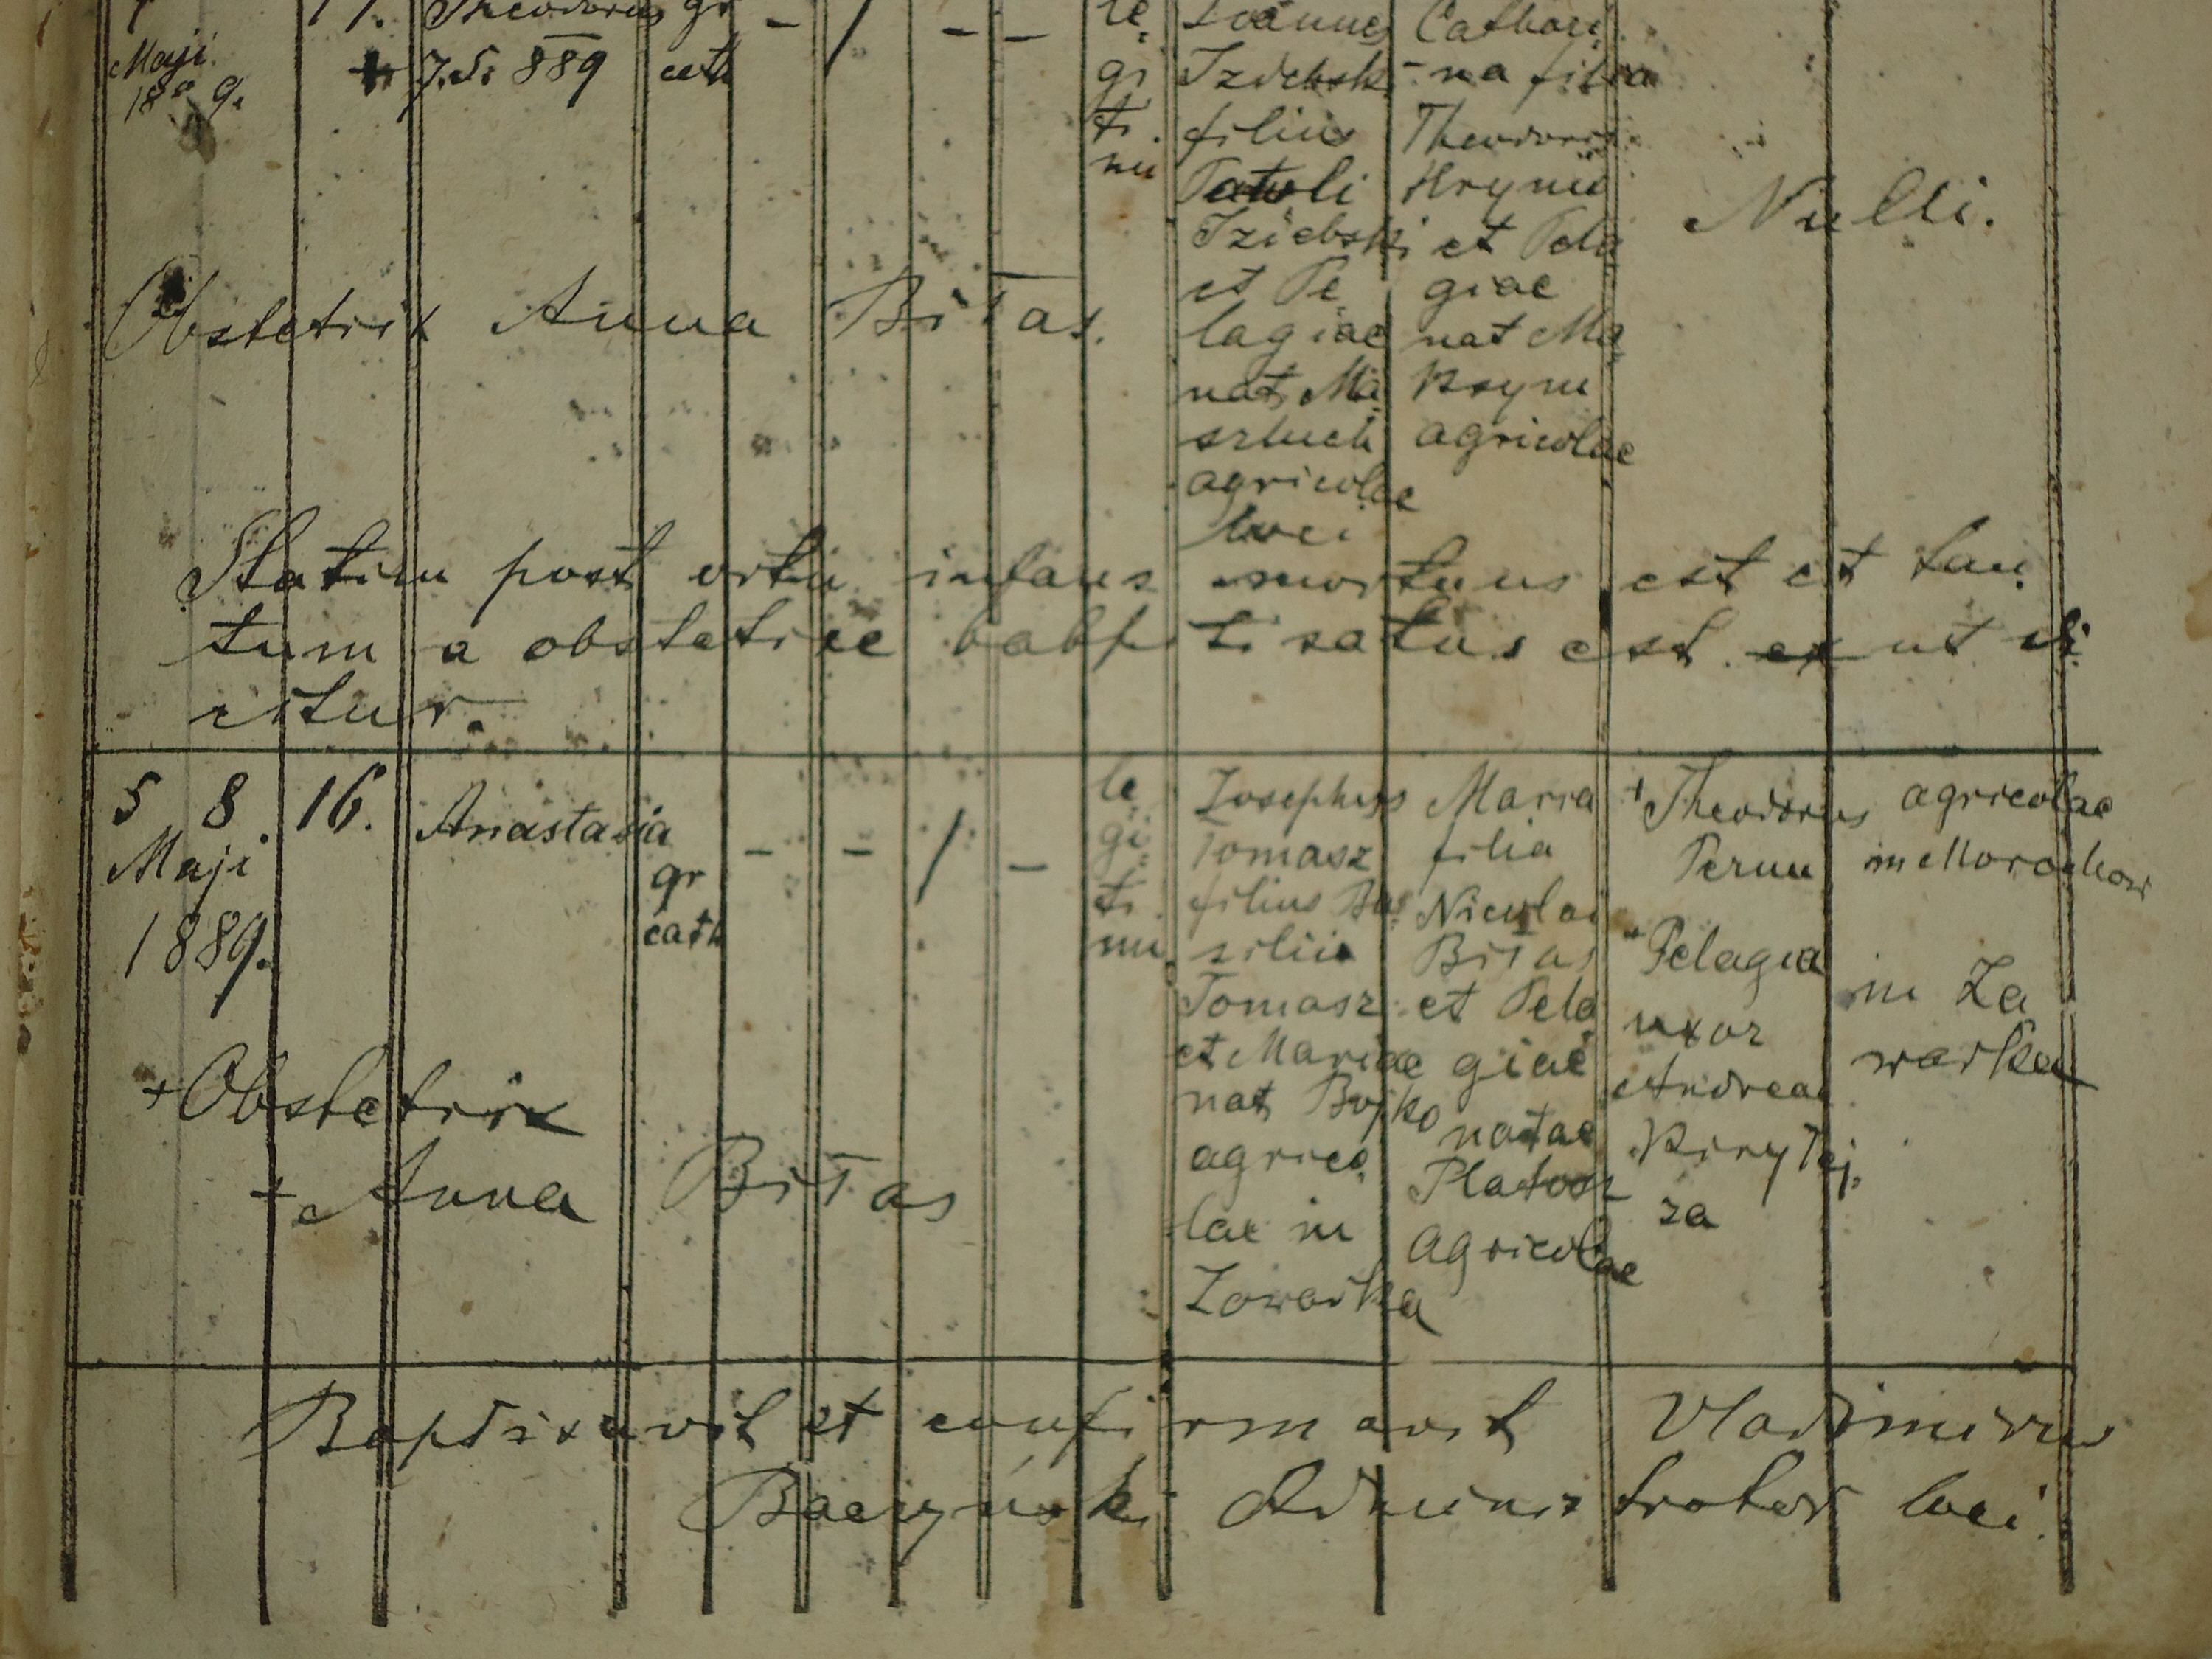 17. Theodorus gr
Maji + 7.5. 889 cath
1889.
le
gi
ti
mi
Ioannes
Izdebski
filius
Pawli
Izdebski
et Pe
lagiae
nat Ma
szluch
agricolae
loci
Cathari
na filia
Theodori
Hrynii
et Pela
giae
nat Ma
ksym
agricolae
Nulli.
Obstetrix Anna Biłas.
Statim post ortu infans mortuus est et tan
tum a obstetrice babptisatus est ex ut di
citur.
5 8. 16. Anastasia
Maji
1889.
gr
cath
- - / -
le
gi
ti
mi
Iosephus
Tomasz
filius Ba
silii
Tomasz
et Mariae
nat Bojko
agrico
lae in
Zawatka
Maria
filia
Nicolai
Biłas
et Pela
giae
natae
agricolae
+ Theodorus
Perun
+ Pelagia
uxor
Andreae
Kiryłej
za
agricolae
in Morochow
in Za
watka
+ Obstetrix
+ Anna Biłas
Baptixavit et confirmavit Vladimirus
Baczyński Administrator loci.